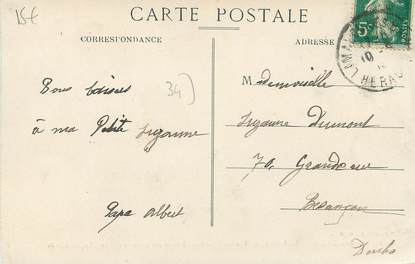 15€
CARTE POSTALE
CORRESPONDANCE
ADRESSE
34)
Bons baisers
à ma Petite Suzanne
Papa Albert
Mademoiselle
Suzanne Dumont
70, Grande rue
Besançon
Doubs
5
LAMALOU
10
HERAULT